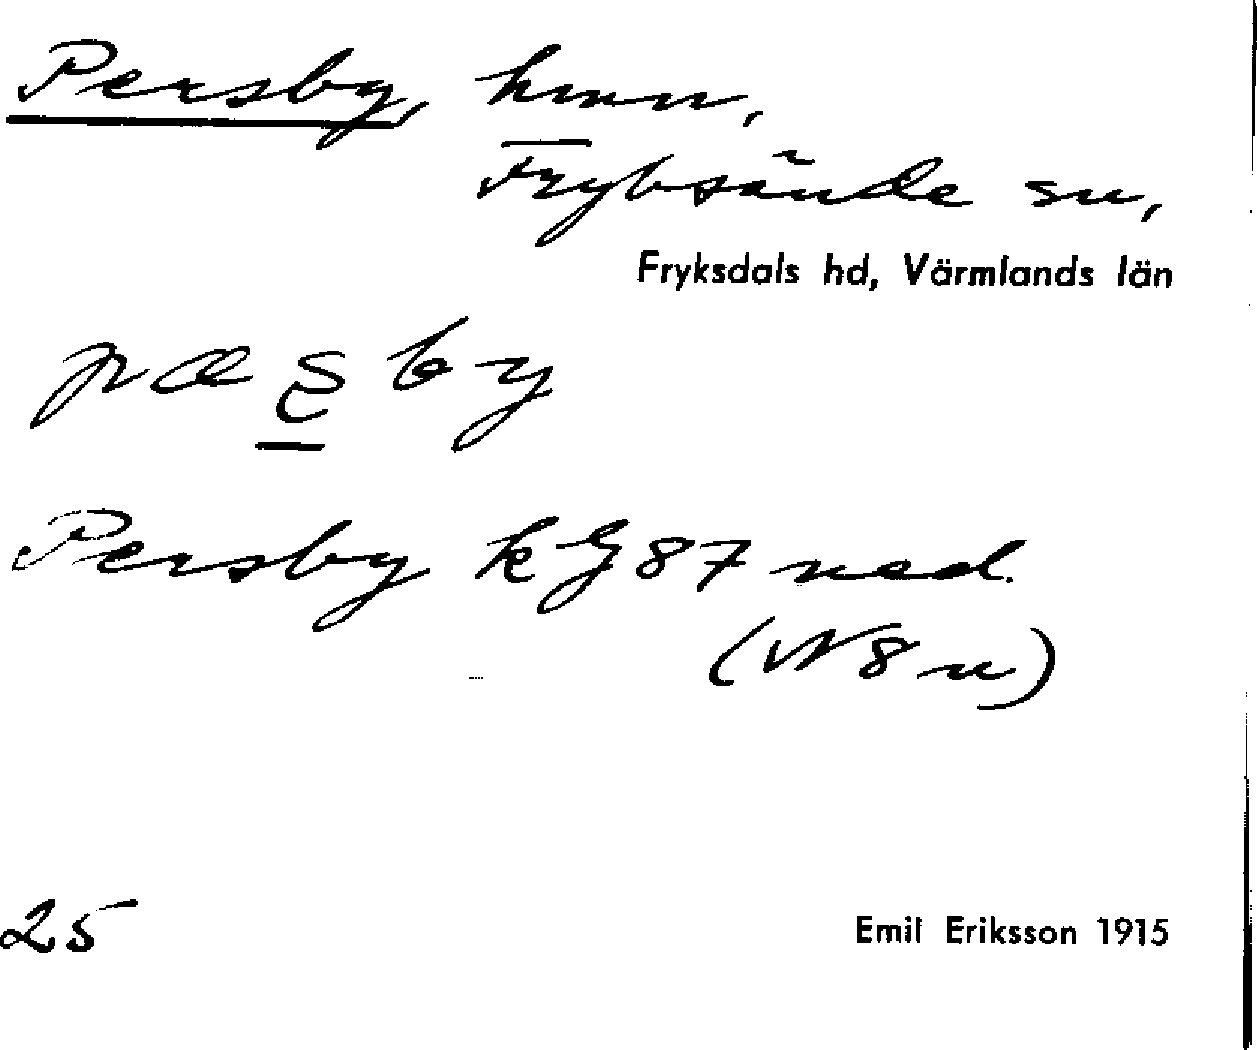 Persby, hmn,
Fryksände sn,
Fryksdals hd, Värmlands län
pæs̱by
Persby kG 87 ned.
(N8n)
25
Emil Eriksson 1915